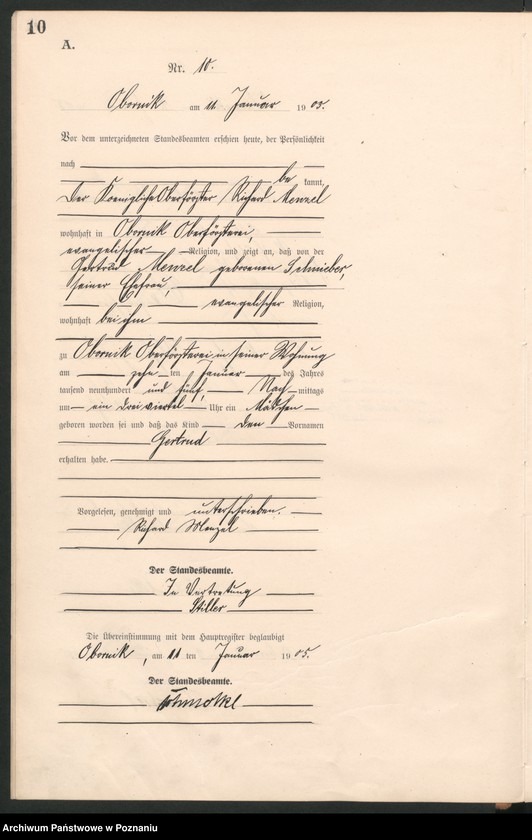 10
A.
Nr. 10.
Obornik am 11 Januar 1905.
Vor dem unterzeichneten Standesbeamten erschien heute, der Persönlichkeit
nach
be kannt,
Der Koenigliche Oberförster Richard Menzel
wohnhaft in Obornik Oberförsterei,
evangelischer Religion, und zeigt an, daß von der
Gertrud Menzel geborenen Schnieber,
seiner Ehefrau,
evangelischer Religion,
wohnhaft bei ihm
zu Obornik Oberförsterei in seiner Wohnung
am zehn ten Januar des Jahres
tausend neunhundert und fünf, Nach mittags
um ein dreiviertel Uhr ein Mädchen
geboren worden sei und daß das Kind den Vornamen
Gertrud
erhalten habe.
Vorgelesen, genehmigt und unterschrieben.
Richard Menzel
Der Standesbeamte.
In Vertretung
Stiller
Die Übereinstimmung mit dem Hauptregister beglaubigt
Obornik, am 11 ten Januar 1905.
Der Standesbeamte.
Archiwum Państwowe w Poznaniu